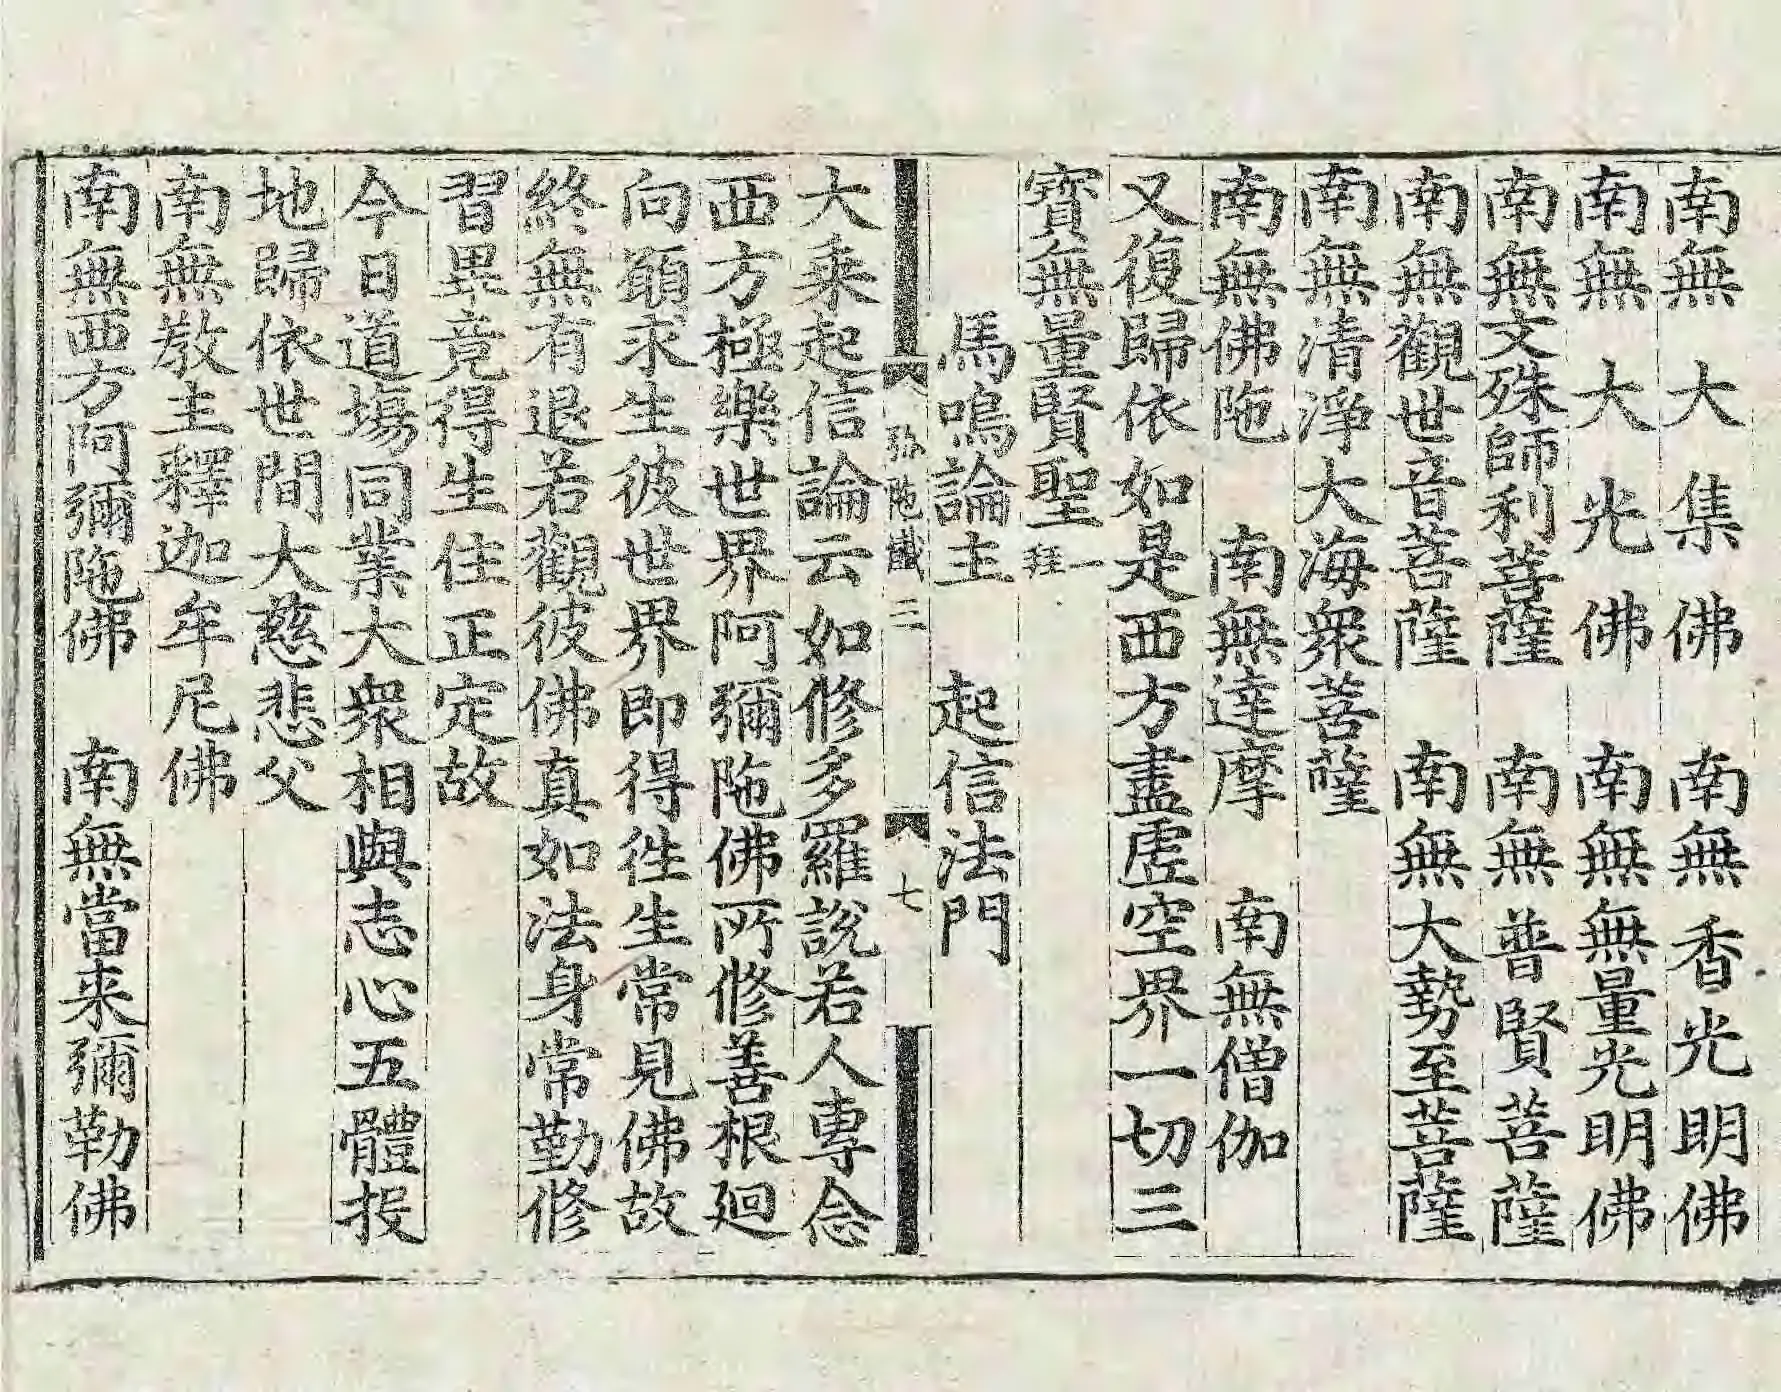 南無大集佛　南無香光明佛
南無大光佛　南無無量光明佛
南無文殊師利菩薩　南無普賢菩薩
南無觀世音菩薩　南無大勢至菩薩
南無清淨大海衆菩薩
南無佛陁　南無達摩　南無僧伽
又復歸依如是西方盡虛空界一切三
寶無量賢聖一拜
馬鳴論主　起信法門
弥陁懺三　七
大乗起信論云如修多羅說若人專念
西方極樂世界阿彌陁佛所修善根廻
向願求生彼世界即得徃生常見佛故
終無有退若觀彼佛真如法身常勤修
習畢竟得生住正定故
今日道場同業大衆相與志心五體投
地歸依世間大慈悲父
南無教主釋迦牟尼佛
南無西方阿彌陁佛　南無當来彌勒佛